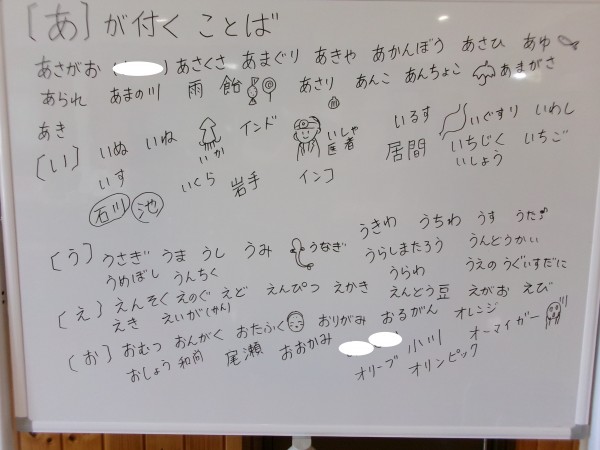 [あ]が付く ことば
あさがお ( ) あさくさ あまぐり あきや あかんぼう あさひ あゆ
あられ あまの川 雨 飴 あさり あんこ あんちょこ あまがさ
あき
[い] いぬ いね いか インド いしゃ 医者 いるす いぐすり いわし
いす いくら 岩手 インコ 居間 いちじく いちご
いしょう
石川 池
[う] うさぎ うま うし うみ うなぎ うきわ うちわ うす うた♪
うめぼし うんちく うらしまたろう うんどうかい
うらわ うえの うぐいすだに
[え] えんそく えのぐ えど えんぴつ えかき えんどう豆 えがお えび
えき えいが(かん)
[お] おむつ おんがく おたふく おりがみ おるがん オレンジ
おしょう 和尚 尾瀬 おおかみ オリーブ 小川 オーマイガー
オリンピック